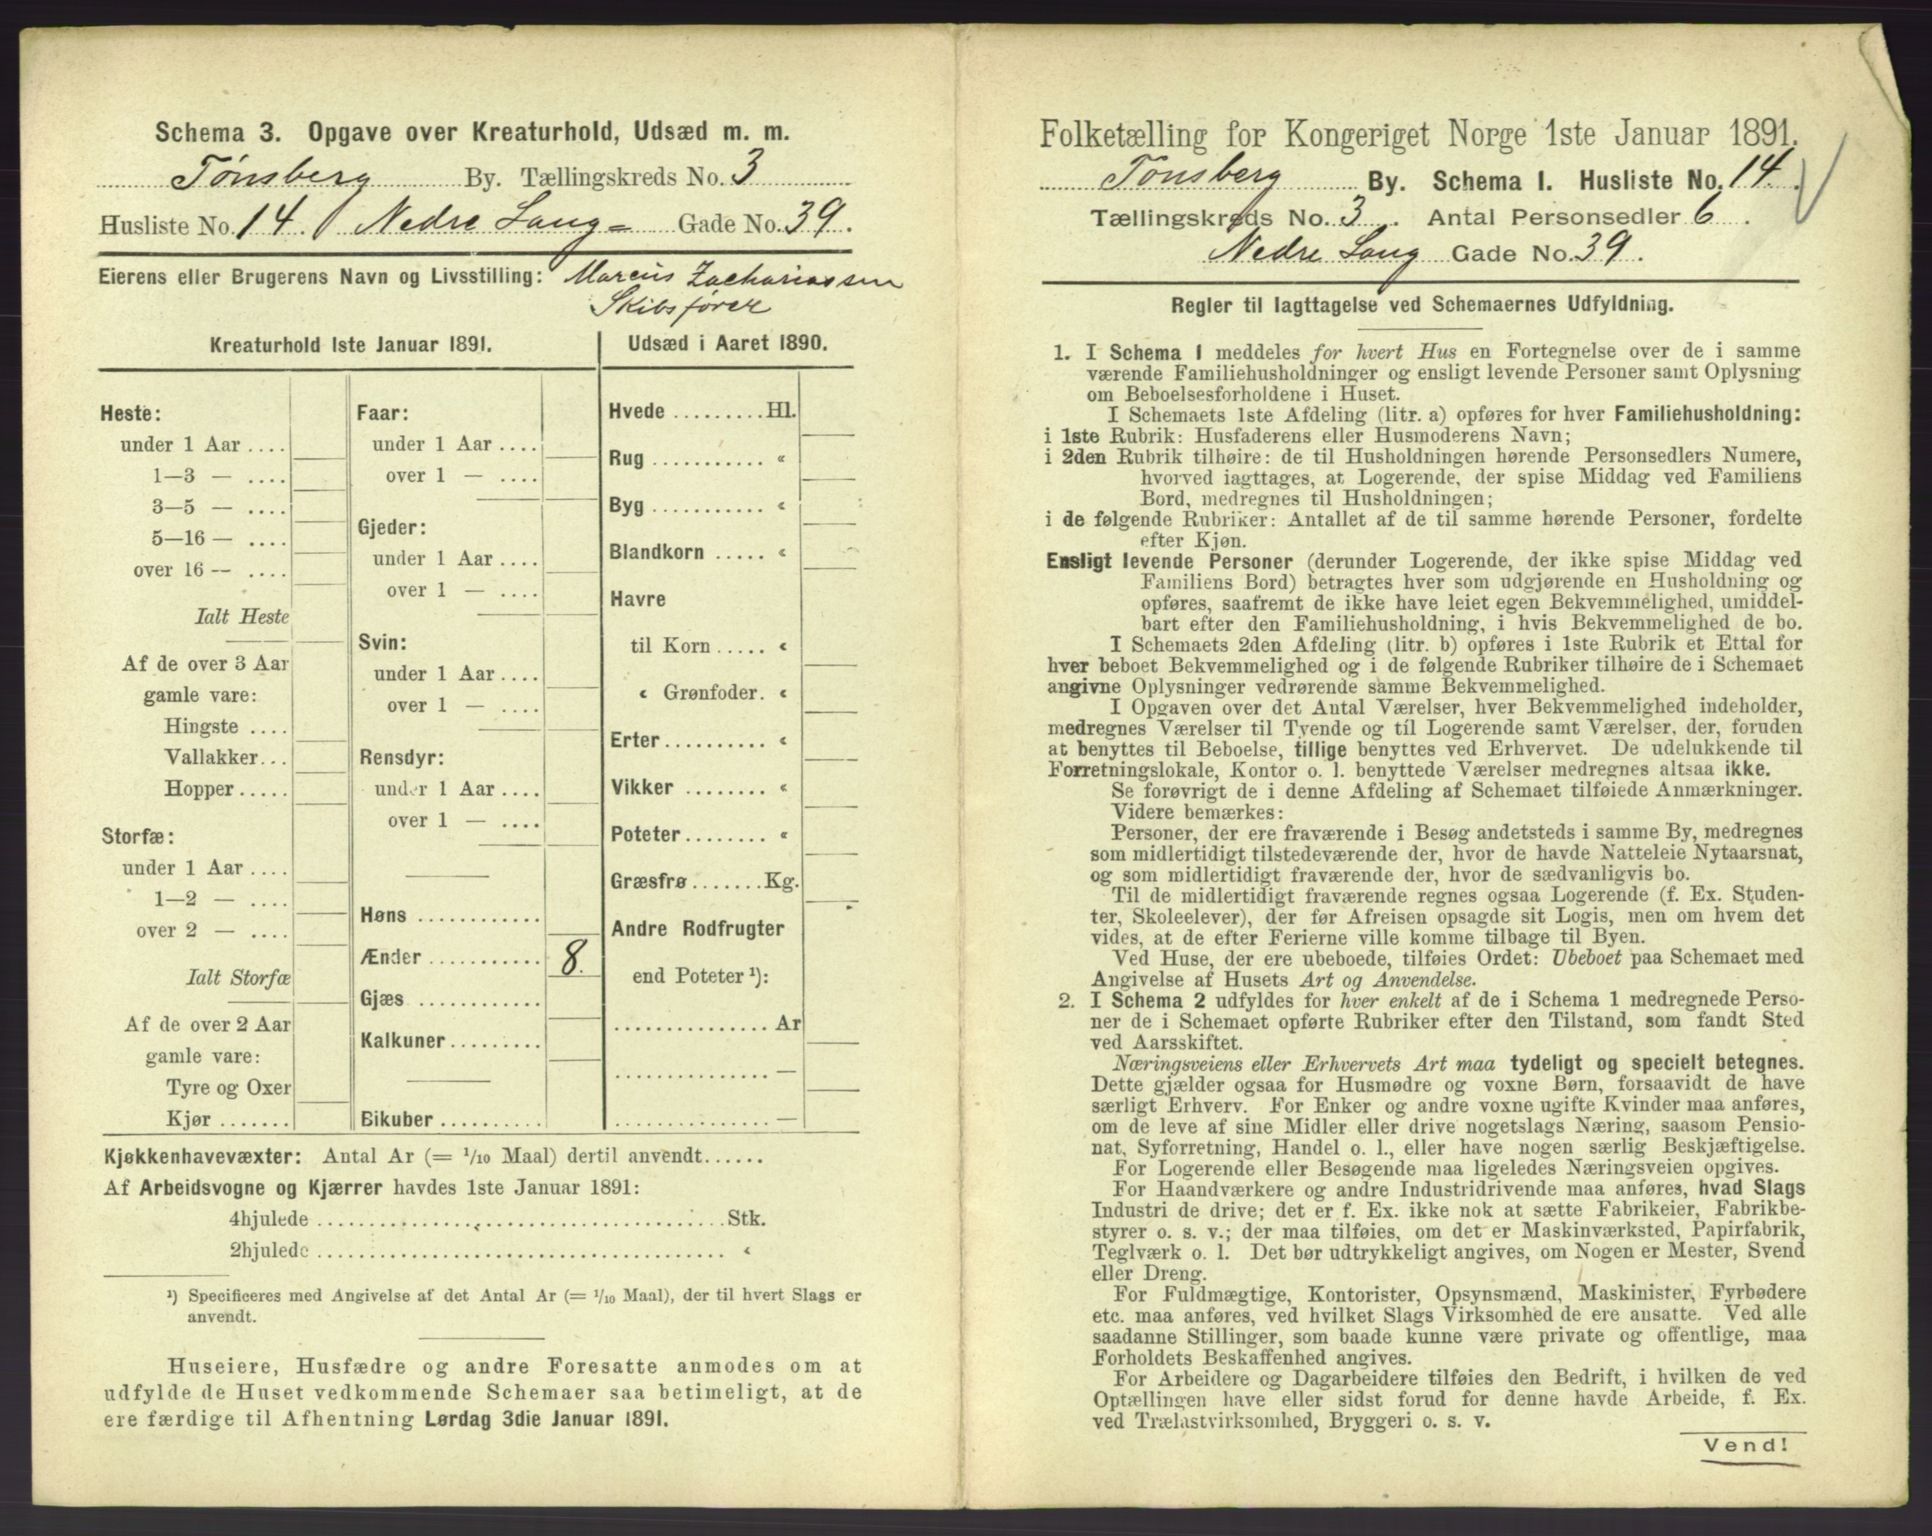 Schema 3. Opgave over Kreaturhold, Udsæd m. m.
Tønsberg By. Tællingskreds No. 3
Husliste No. 14. Nedre Lang- Gade No. 39.
Eierens eller Brugerens Navn og Livsstilling: Marcus Zachariassen
Skibsfører
Kreaturhold 1ste Januar 1891.
Heste:
under 1 Aar ....
1—3 — ....
3—5 — ....
5—16 — ....
over 16 — ....
Ialt Heste
Af de over 3 Aar
gamle vare:
Hingste ....
Vallakker...
Hopper .....
Storfæ:
under 1 Aar ....
1—2 — ....
over 2 — ....
Ialt Storfæ
Af de over 2 Aar
gamle vare:
Tyre og Oxer
Kjør .......
Faar:
under 1 Aar ....
over 1 — ....
Gjeder:
under 1 Aar ....
over 1 — ....
Svin:
under 1 Aar ....
over 1 — ....
Rensdyr:
under 1 Aar ....
over 1 — ....
Høns ............
Ænder ........... 8.
Gjæs ............
Kalkuner.........
Bikuber ..........
Udsæd i Aaret 1890.
Hvede .........Hl.
Rug ........... «
Byg ........... «
Blandkorn ..... «
Havre
til Korn ..... «
« Grønfoder. «
Erter.......... «
Vikker ........ «
Poteter........ «
Græsfrø.......Kg.
Andre Rodfrugter
end Poteter ¹):
............... Ar
............... —
............... —
Kjøkkenhavevæxter: Antal Ar (= 1/10 Maal) dertil anvendt......
Af Arbeidsvogne og Kjærrer havdes 1ste Januar 1891:
4hjulede ........................................Stk.
2hjulede ........................................ «
¹) Specificeres med Angivelse af det Antal Ar (= 1/10 Maal), der til hvert Slags er
anvendt.
Huseiere, Husfædre og andre Foresatte anmodes om at
udfylde de Huset vedkommende Schemaer saa betimeligt, at de
ere færdige til Afhentning Lørdag 3die Januar 1891.
Folketælling for Kongeriget Norge 1ste Januar 1891.
Tønsberg By. Schema 1. Husliste No. 14.
Tællingskreds No. 3. Antal Personsedler 6.
Nedre Lang Gade No. 39.
Regler til Iagttagelse ved Schemaernes Udfyldning.
1. I Schema 1 meddeles for hvert Hus en Fortegnelse over de i samme
værende Familiehusholdninger og ensligt levende Personer samt Oplysning
om Beboelsesforholdene i Huset.
I Schemaets 1ste Afdeling (litr. a) opføres for hver Familiehusholdning:
i 1ste Rubrik: Husfaderens eller Husmoderens Navn;
i 2den Rubrik tilhøire: de til Husholdningen hørende Personsedlers Numere,
hvorved iagttages, at Logerende, der spise Middag ved Familiens
Bord, medregnes til Husholdningen;
i de følgende Rubriker: Antallet af de til samme hørende Personer, fordelte
efter Kjøn.
Ensligt levende Personer (derunder Logerende, der ikke spise Middag ved
Familiens Bord) betragtes hver som udgjørende en Husholdning og
opføres, saafremt de ikke have leiet egen Bekvemmelighed, umiddel-
bart efter den Familiehusholdning, i hvis Bekvemmelighed de bo.
I Schemaets 2den Afdeling (litr. b) opføres i 1ste Rubrik et Ettal for
hver beboet Bekvemmelighed og i de følgende Rubriker tilhøire de i Schemaet
angivne Oplysninger vedrørende samme Bekvemmelighed.
I Opgaven over det Antal Værelser, hver Bekvemmelighed indeholder,
medregnes Værelser til Tyende og til Logerende samt Værelser, der, foruden
at benyttes til Beboelse, tillige benyttes ved Erhvervet. De udelukkende til
Forretningslokale, Kontor o. l. benyttede Værelser medregnes altsaa ikke.
Se forøvrigt de i denne Afdeling af Schemaet tilføiede Anmærkninger.
Videre bemærkes:
Personer, der ere fraværende i Besøg andetsteds i samme By, medregnes
som midlertidigt tilstedeværende der, hvor de havde Natteleie Nytaarsnat,
og som midlertidigt fraværende der, hvor de sædvanligvis bo.
Til de midlertidigt fraværende regnes ogsaa Logerende (f. Ex. Studen-
ter, Skoleelever), der før Afreisen opsagde sit Logis, men om hvem det
vides, at de efter Ferierne ville komme tilbage til Byen.
Ved Huse, der ere ubeboede, tilføies Ordet: Ubeboet paa Schemaet med
Angivelse af Husets Art og Anvendelse.
2. I Schema 2 udfyldes for hver enkelt af de i Schema 1 medregnede Perso-
ner de i Schemaet opførte Rubriker efter den Tilstand, som fandt Sted
ved Aarsskiftet.
Næringsveiens eller Erhvervets Art maa tydeligt og specielt betegnes.
Dette gjælder ogsaa for Husmødre og voxne Børn, forsaavidt de have
særligt Erhverv. For Enker og andre voxne ugifte Kvinder maa anføres,
om de leve af sine Midler eller drive nogetslags Næring, saasom Pensio-
nat, Syforretning, Handel o. l., eller have nogen særlig Beskjæftigelse.
For Logerende eller Besøgende maa ligeledes Næringsveien opgives.
For Haandværkere og andre Industridrivende maa anføres, hvad Slags
Industri de drive; det er f. Ex. ikke nok at sætte Fabrikeier, Fabrikbe-
styrer o. s. v.; der maa tilføies, om det er Maskinværksted, Papirfabrik,
Teglværk o. l. Det bør udtrykkeligt angives, om Nogen er Mester, Svend
eller Dreng.
For Fuldmægtige, Kontorister, Opsynsmænd, Maskinister, Fyrbødere
etc. maa anføres, ved hvilket Slags Virksomhed de ere ansatte. Ved alle
saadanne Stillinger, som baade kunne være private og offentlige, maa
Forholdets Beskaffenhed angives.
For Arbeidere og Dagarbeidere tilføies den Bedrift, i hvilken de ved
Optællingen have eller sidst forud for denne havde Arbeide, f. Ex.
ved Trælastvirksomhed, Bryggeri o. s. v.
Vend!